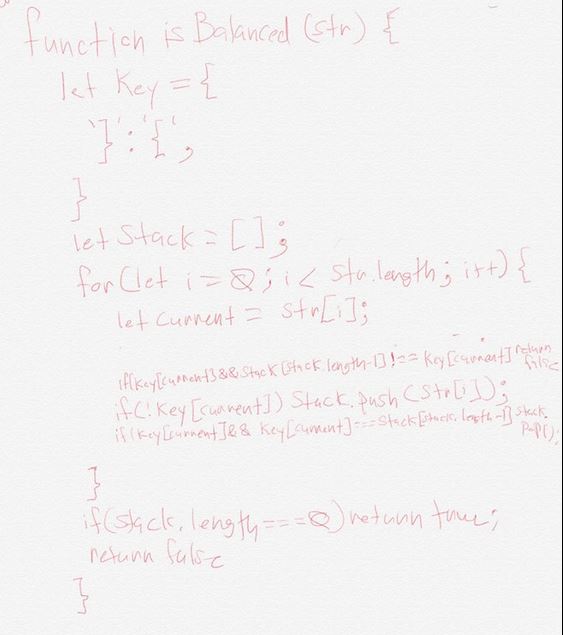 function isBalanced (str) {
let Key = {
'}' : '{',
}
let Stack = [];
for (let i = 0; i < str.length; i++) {
let current = str[i];
if(Key[current] && Stack[stack.length-1] !== Key[current] return false
if (!Key[current]) Stack.push(str[i]);
if (Key[current] && Key[current] === Stack[stack.length-1] stack.pop();
}
if(stack.length === 0) return true;
return false
}